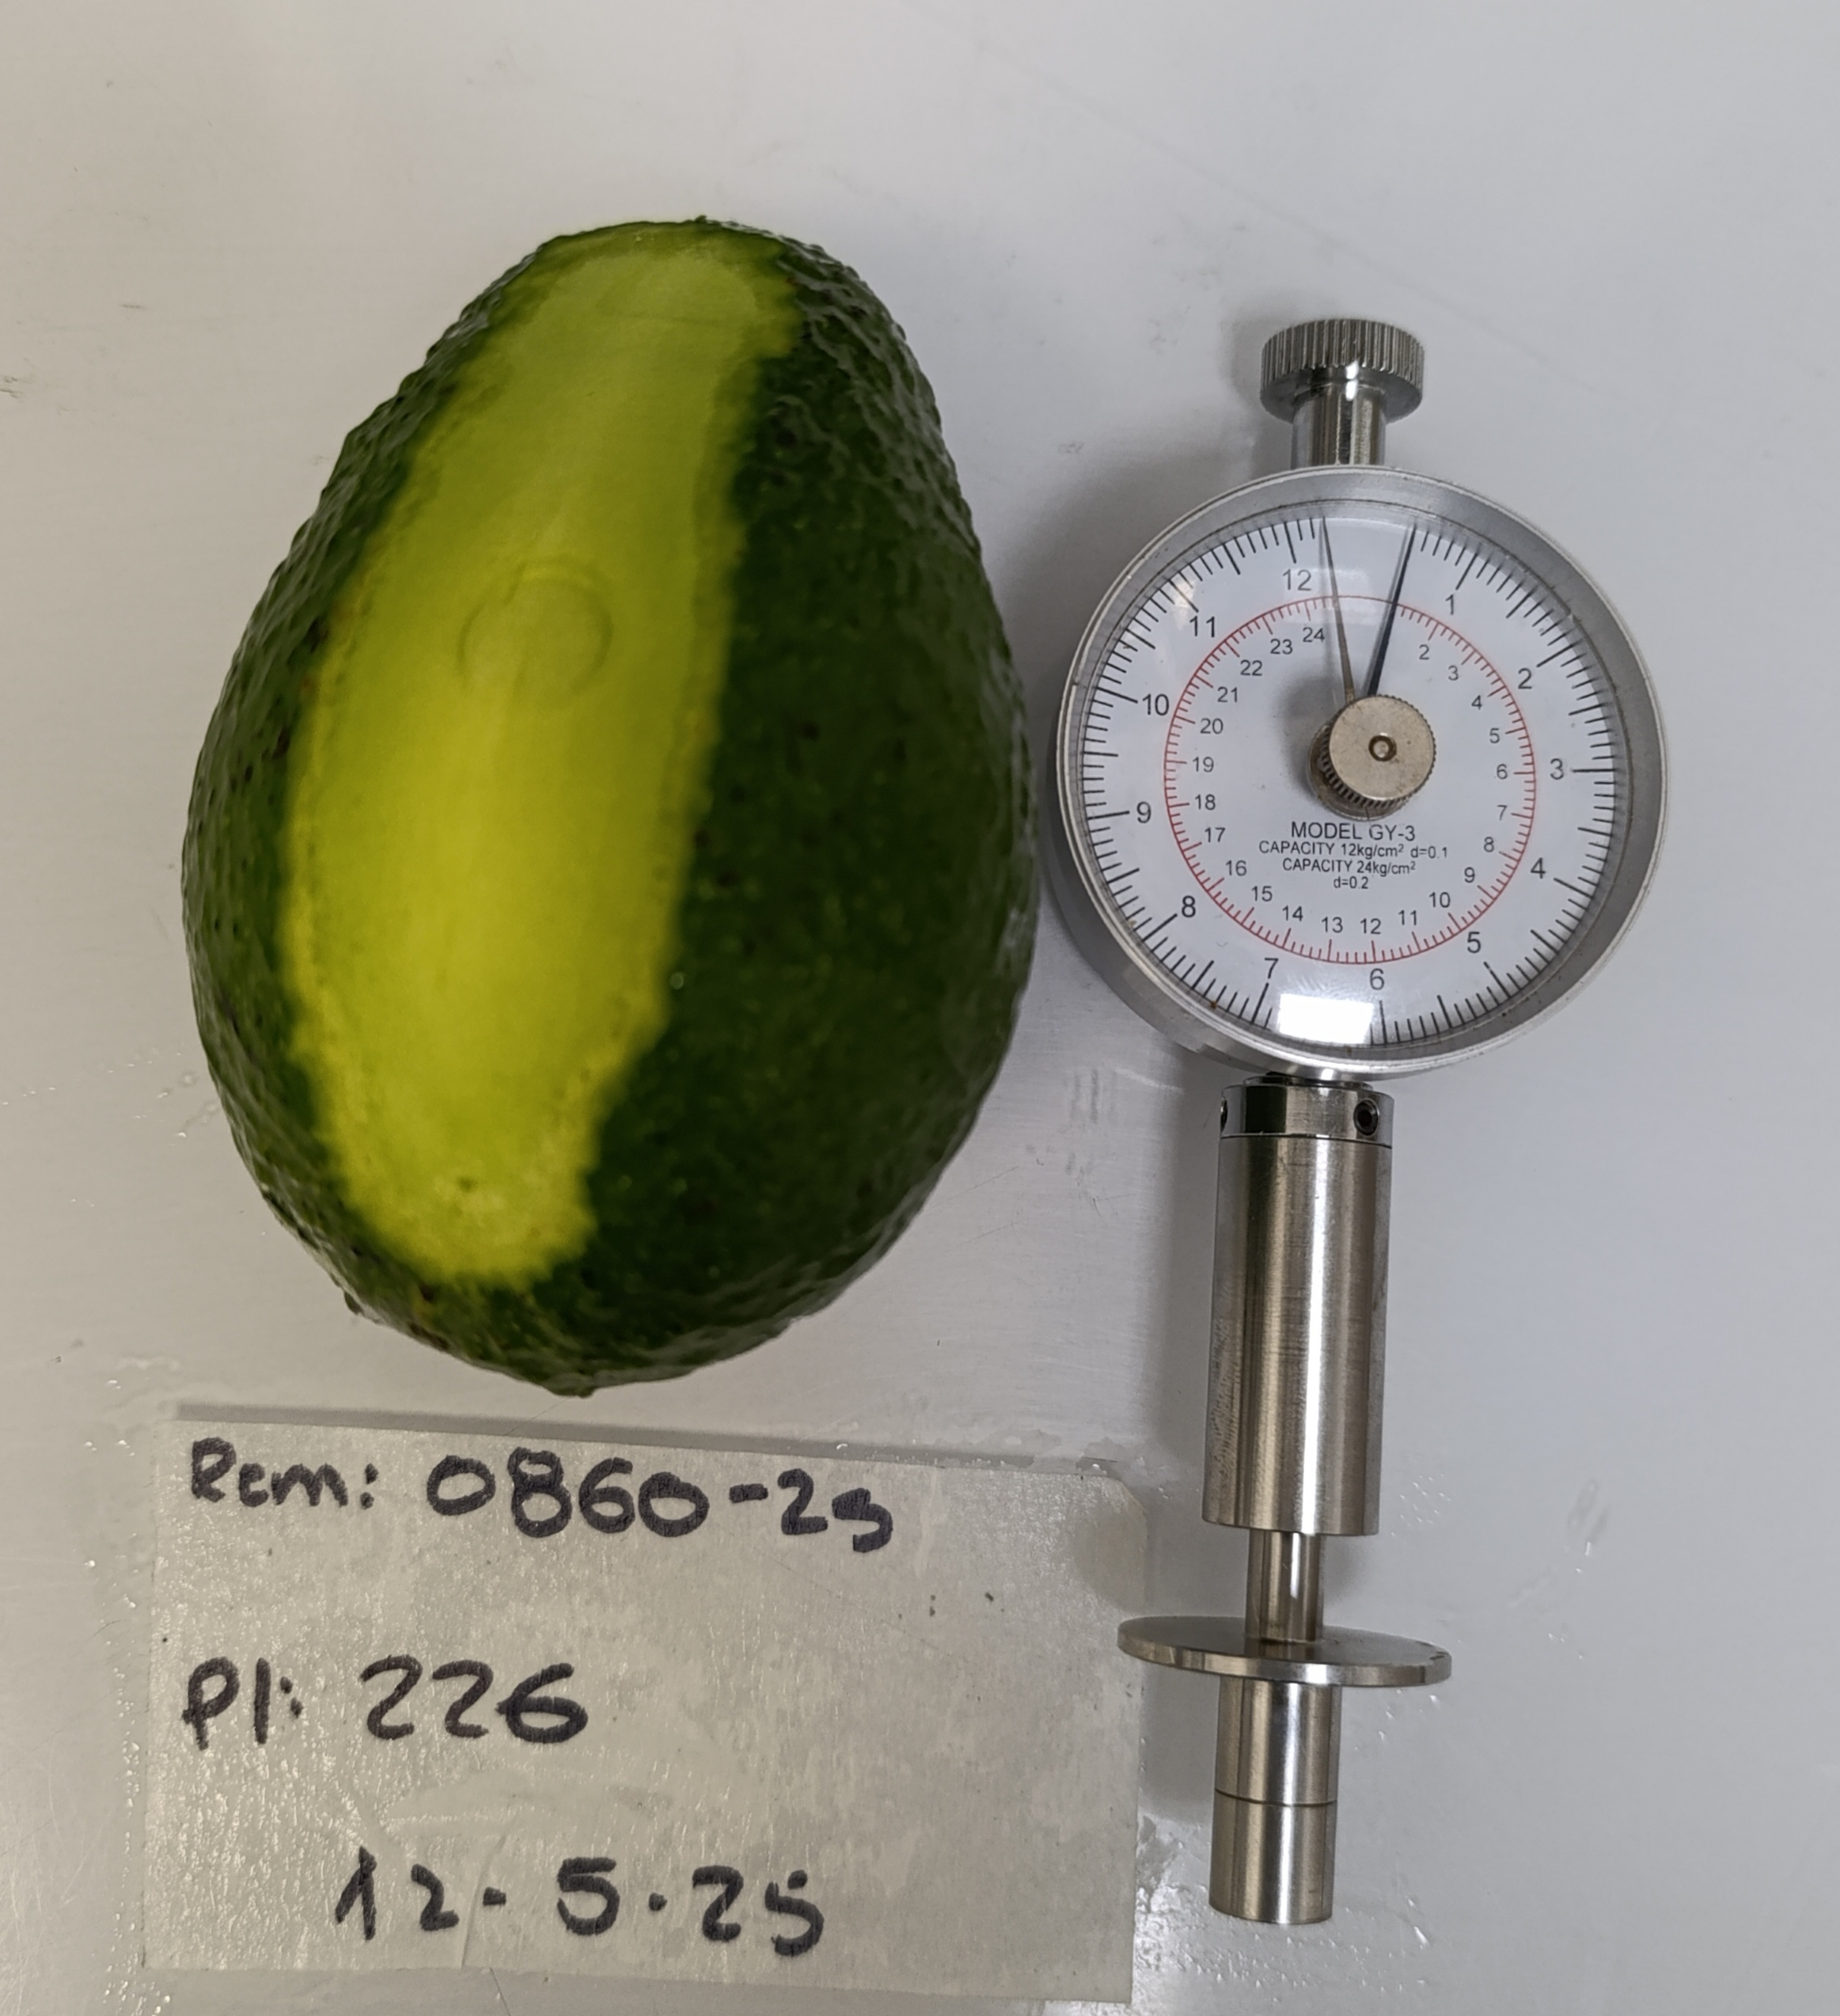 12
1
2
3
4
5
6
7
8
9
10
11
24
2
3
4
5
6
7
8
9
10
11
12
13
14
15
16
17
18
19
20
21
22
23
MODEL GY-3
CAPACITY 12kg/cm² d=0.1
CAPACITY 24kg/cm²
d=0.2
Rem: 0860-25
Pl: 226
12-5.25